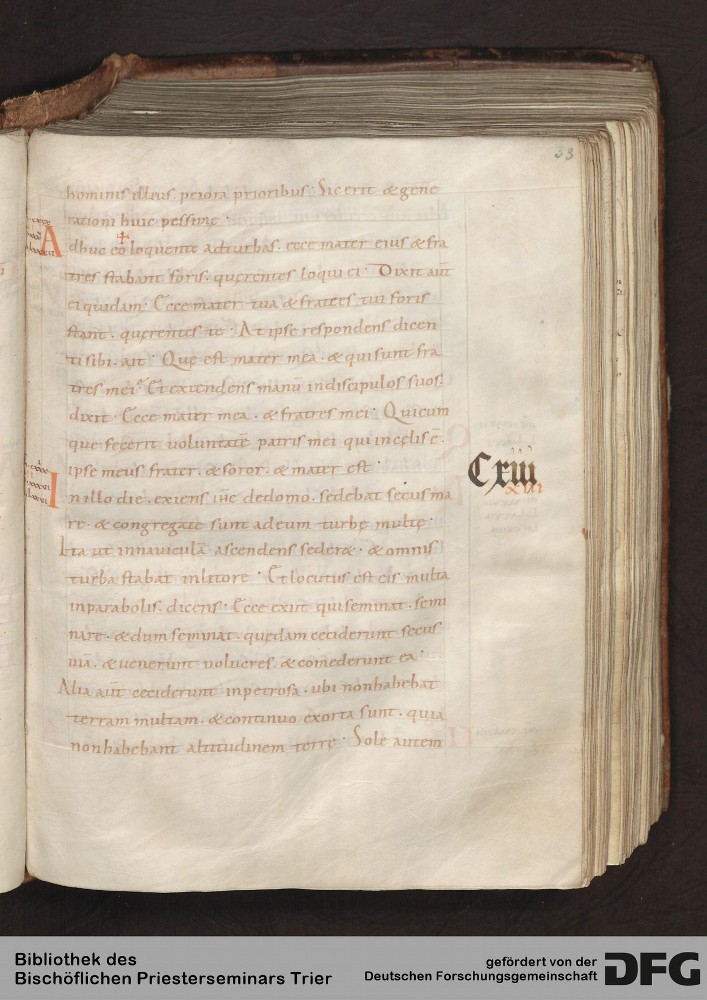 33
hominis illius peiora prioribus. Sic erit & gene
rationi huic pessimę.
Adhuc eo loquente adturbas. ecce mater eius & fra
tres stabant foris. querentes loqui ei. Dixit aut̄
ei quidam. Ecce mater tua & fratres tui foris
stant. querentes te. At ipse respondens dicen
ti sibi. ait. Quę est mater mea. & qui sunt fra
tres mei? Et extendens manū in discipulos suos.
dixit. Ecce mater mea. & fratres mei. Quicum
que fecerit voluntatē patris mei qui incęlis ē.
ipse meus frater. & soror. & mater est.
In illo die. exiens ih̄c dedomo. sedebat secus ma
re. & congregatę sunt adeum turbę multę.
Ita ut innaviculā ascendens seder&. & omnis
turba stabat inlitore. Et locutus est eis multa
inparabolis. dicens. Ecce exiit qui seminat. semi
nare. & dum seminat. quędam ceciderunt secus
viā. & venerunt volucres. & comederunt ea.
Alia aut̄ ceciderunt inpetrosa. ubi nonhabebat
terram multam. & continuo exorta sunt. quia
nonhabebant altitudinem terrę. Sole autem
Cxiii
xiii
Bibliothek des
Bischöflichen Priesterseminars Trier
gefördert von der
Deutschen Forschungsgemeinschaft
DFG